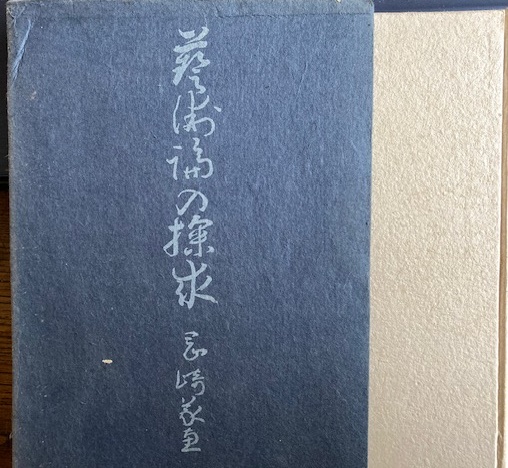 藝術論の探求
岡崎義恵